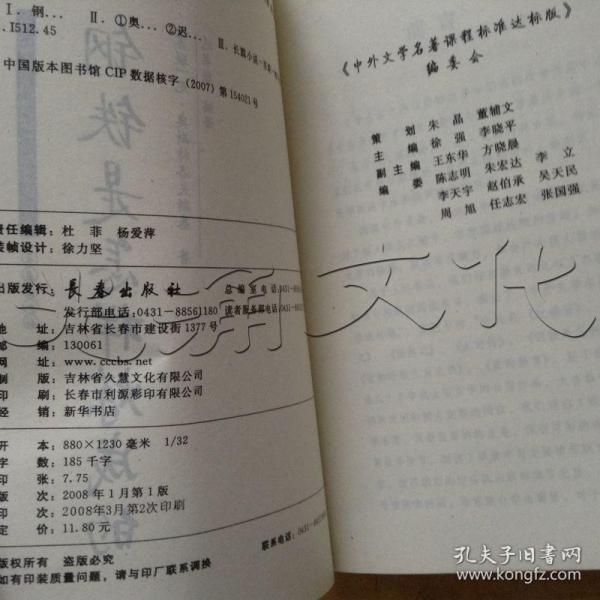 Ⅰ. 钢… Ⅱ. ①奥… ②迟…
.I512.45
中国版本图书馆 CIP 数据核字 (2007) 第 154021 号
责任编辑: 杜 菲 杨爱萍
装帧设计: 徐力坚
出版发行: 長春出版社
总编室电话:0431-8856
发行部电话:0431-88561180
读者服务部电话:0431-
地 址: 吉林省长春市建设街 1377 号
邮 编: 130061
网 址: www.cccbs.net
制 版: 吉林省久慧文化有限公司
印 刷: 长春市利源彩印有限公司
经 销: 新华书店
开 本: 880×1230 毫米 1/32
字 数: 185 千字
印 张: 7.75
版 次: 2008 年 1 月第 1 版
印 次: 2008年3月第2次印刷
定 价: 11.80 元
版权所有 盗版必究
如有印装质量问题, 请与印厂联系调换
联系电话: 0431-
《中外文学名著课程标准达标版》
编委会
策 划 朱 晶 董辅文
主 编 徐 强 李晓平
副主编 王东华 方晓晨
编 委 陈志明 朱宏达 李 立
李天宇 赵伯承 吴天民
周 旭 任志宏 张国强
文化
孔夫子旧书网
www.kongfz.com